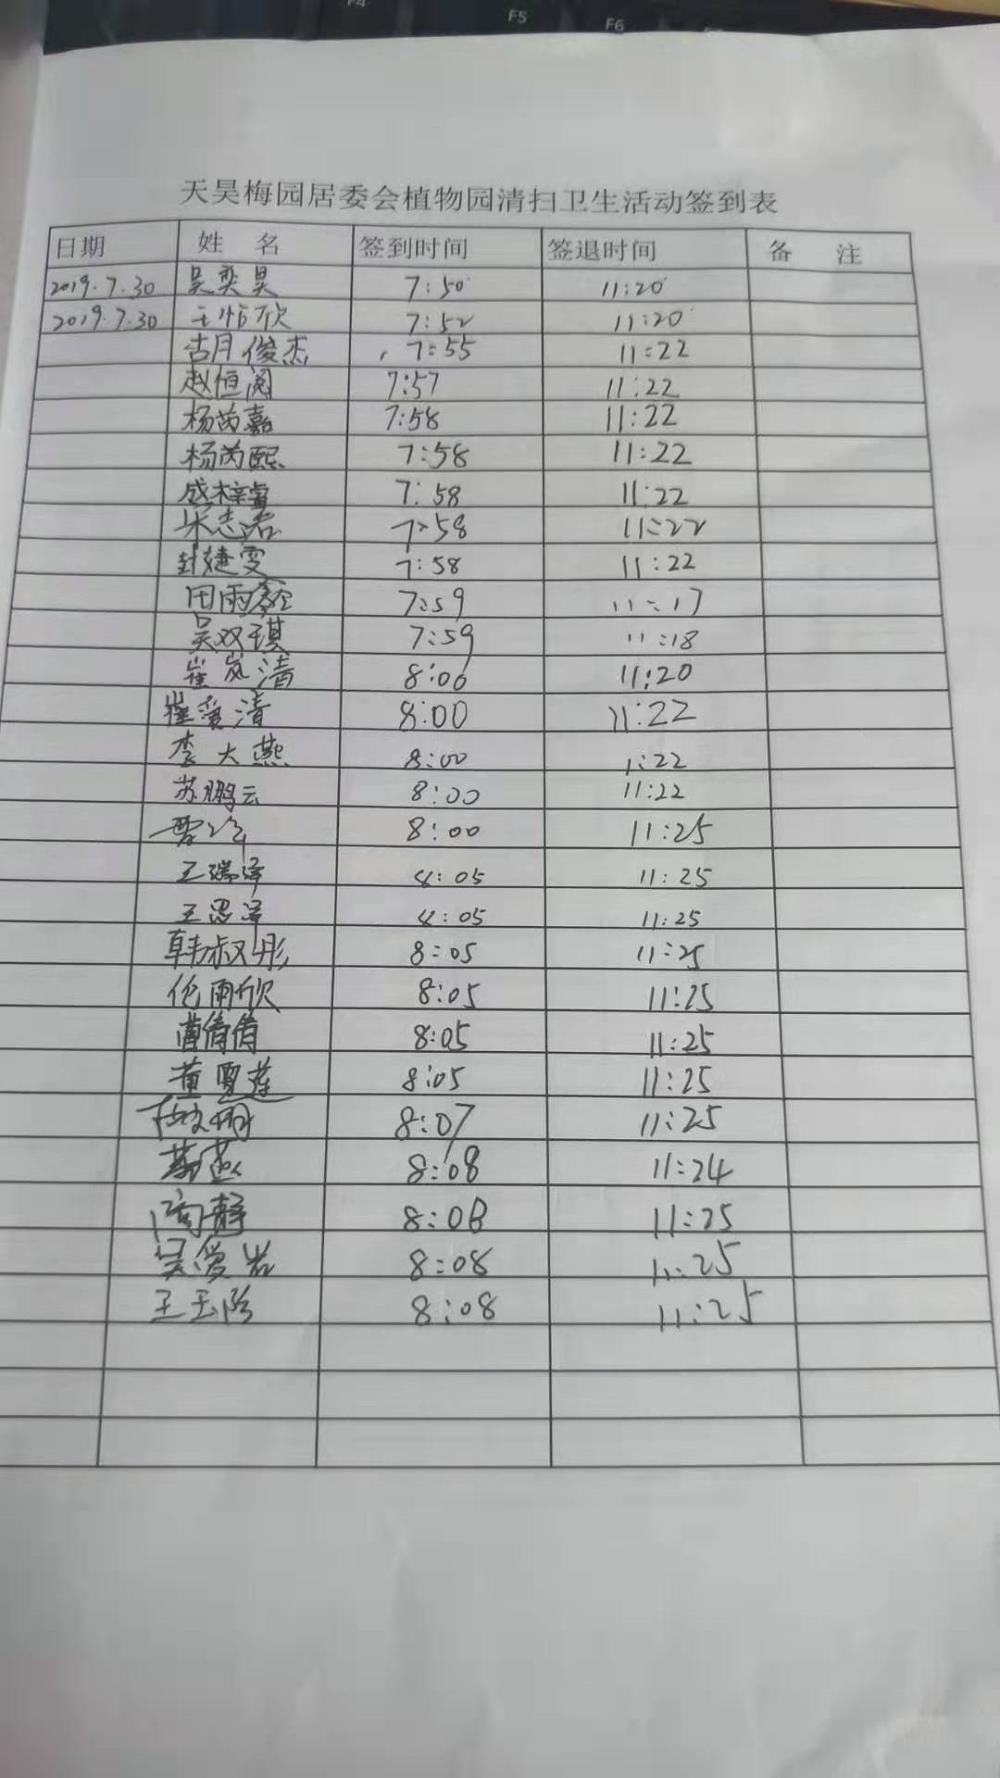 F4 F5 F6
天昊梅园居委会植物园清扫卫生活动签到表
日期 姓 名 签到时间 签退时间 备 注
2019.7.30 吴奕昊 7:50 11:20
2019.7.30 王怡欣 7:52 11:20
胡俊杰 7:55 11:22
赵恒阅 7:57 11:22
杨芮嘉 7:58 11:22
杨芮熙 7:58 11:22
盛梓睿 7:58 11:22
宋志君 7:58 11:22
封婕雯 7:58 11:22
田雨鑫 7:59 11:17
吴双琪 7:59 11:18
崔岚清 8:00 11:20
崔爱清 8:00 11:22
李大燕 8:00 1:22
苏鹏云 8:00 11:22
8:00 11:25
王瑞泽 8:05 11:25
王思泽 8:05 11:25
韩叔彤 8:05 11:25
伦雨欣 8:05 11:25
曹倩倩 8:05 11:25
董夏莲 8:05 11:25
8:07 11:25
8:08 11:24
陶静 8:08 11:25
吴爱岩 8:08 11:25
王玉 8:08 11:25